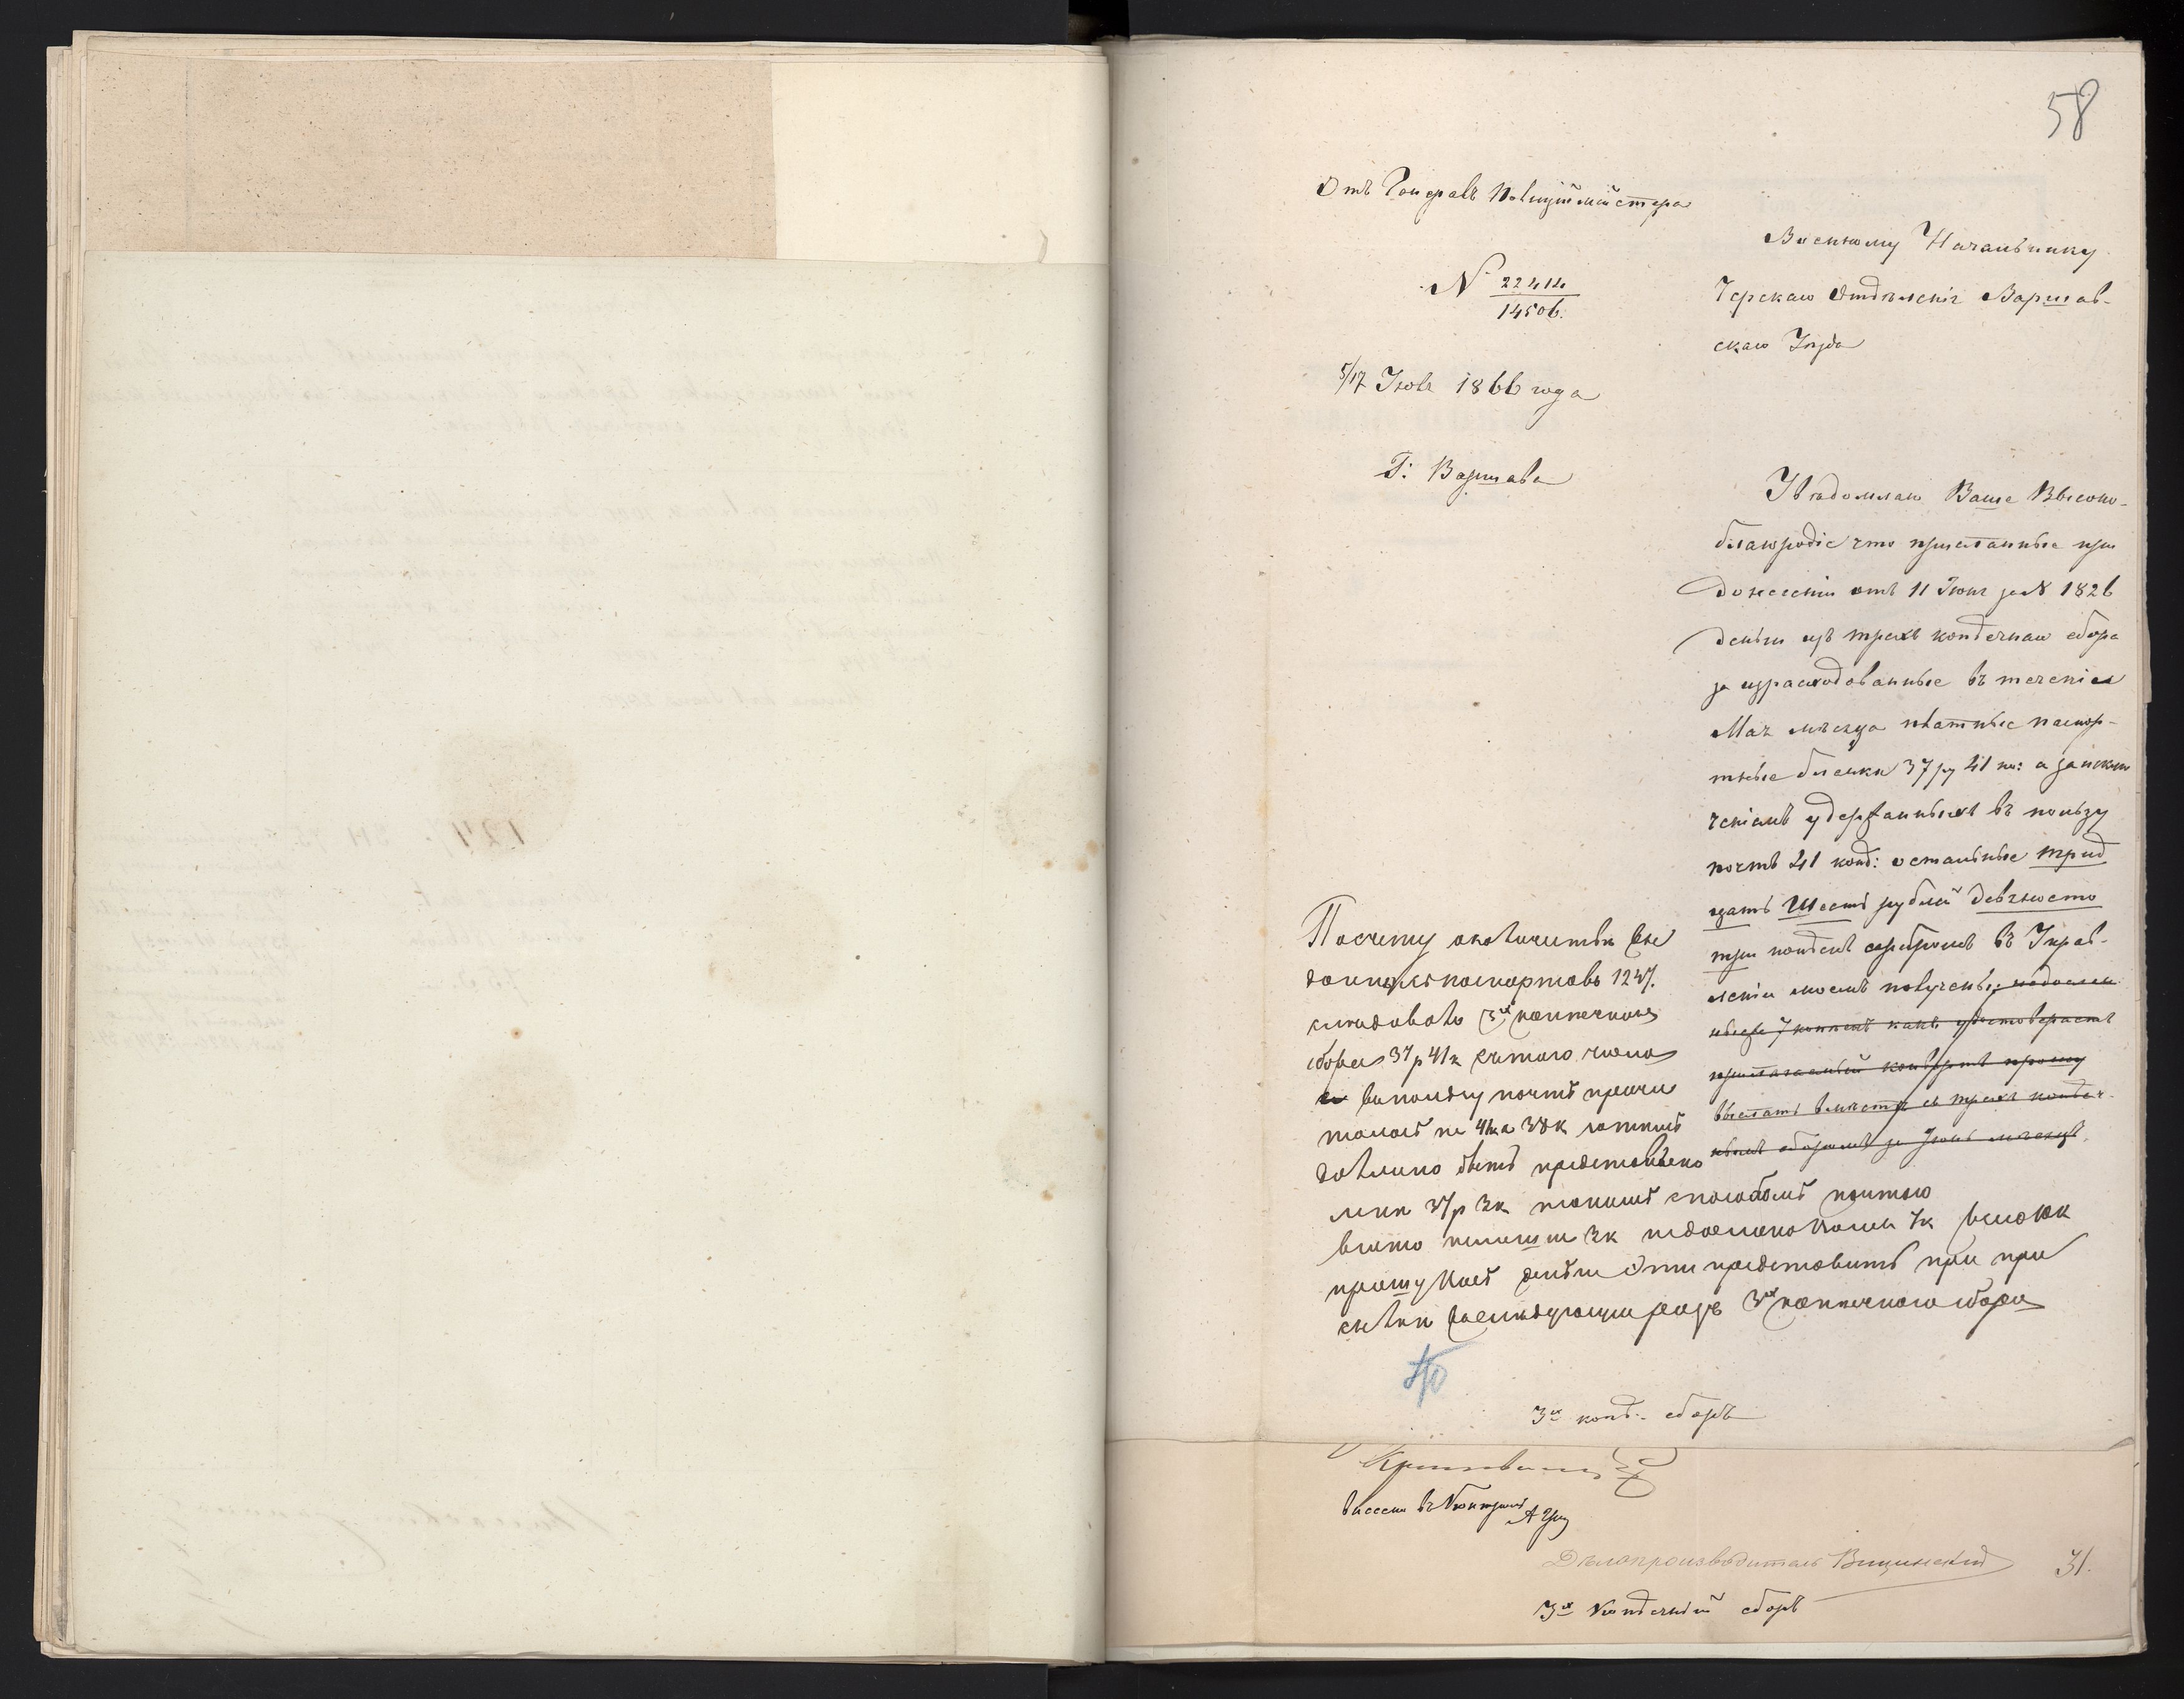 58
Отъ Генералъ Полиціймейстера
№ 22414
14506.
5/17 Іюля 1866 года
Г: Варшава
Военному Начальнику
Черскаго Отдѣленія Варшав-
скаго Уѣзда
Увѣдомляю Ваше Высоко-
благородіе что присланные при
донесеніи отъ 11 Іюня за № 1826
деньги изъ трехъ копѣечнаго сбора
за израсходованные въ теченіи
Мая мѣсяца платные паспор-
тные бланки 37 ру 41 ко: а за исклю
ченіемъ удержанныхъ въ пользу
почтъ 41 коп: остальные трид
цать Шесть рублей девяносто
три копѣекъ серебромъ въ Управ-
леніи моемъ получены, недослан
ныхъ 7 копѣекъ какъ удостовѣряетъ
прилагаемый конвертъ прошу
выслать вмѣстѣ съ трехъ копѣеч-
нымъ сборомъ за Іюнь мѣсяцъ.
По счету оказ вы
данныхъ паспортовъ 1247.
слѣдовало 3х копѣечного
сбора 37 р 41 к съ того числа
въ пользу почтъ
38 к
должно быть представлено
мнѣ 37 р 3 к такимъ способомъ почтою
взято 3 к недослано Вами 7 к всего 10 к
прошу Васъ деньги эти представить при при
сылкѣ въ слѣдующій разъ 3х копѣечного сбора
3х коп: сборъ
внесен въ Контроль
Дѣлопроизводитель Вищинскій
31.
3х Копѣечный сборъ